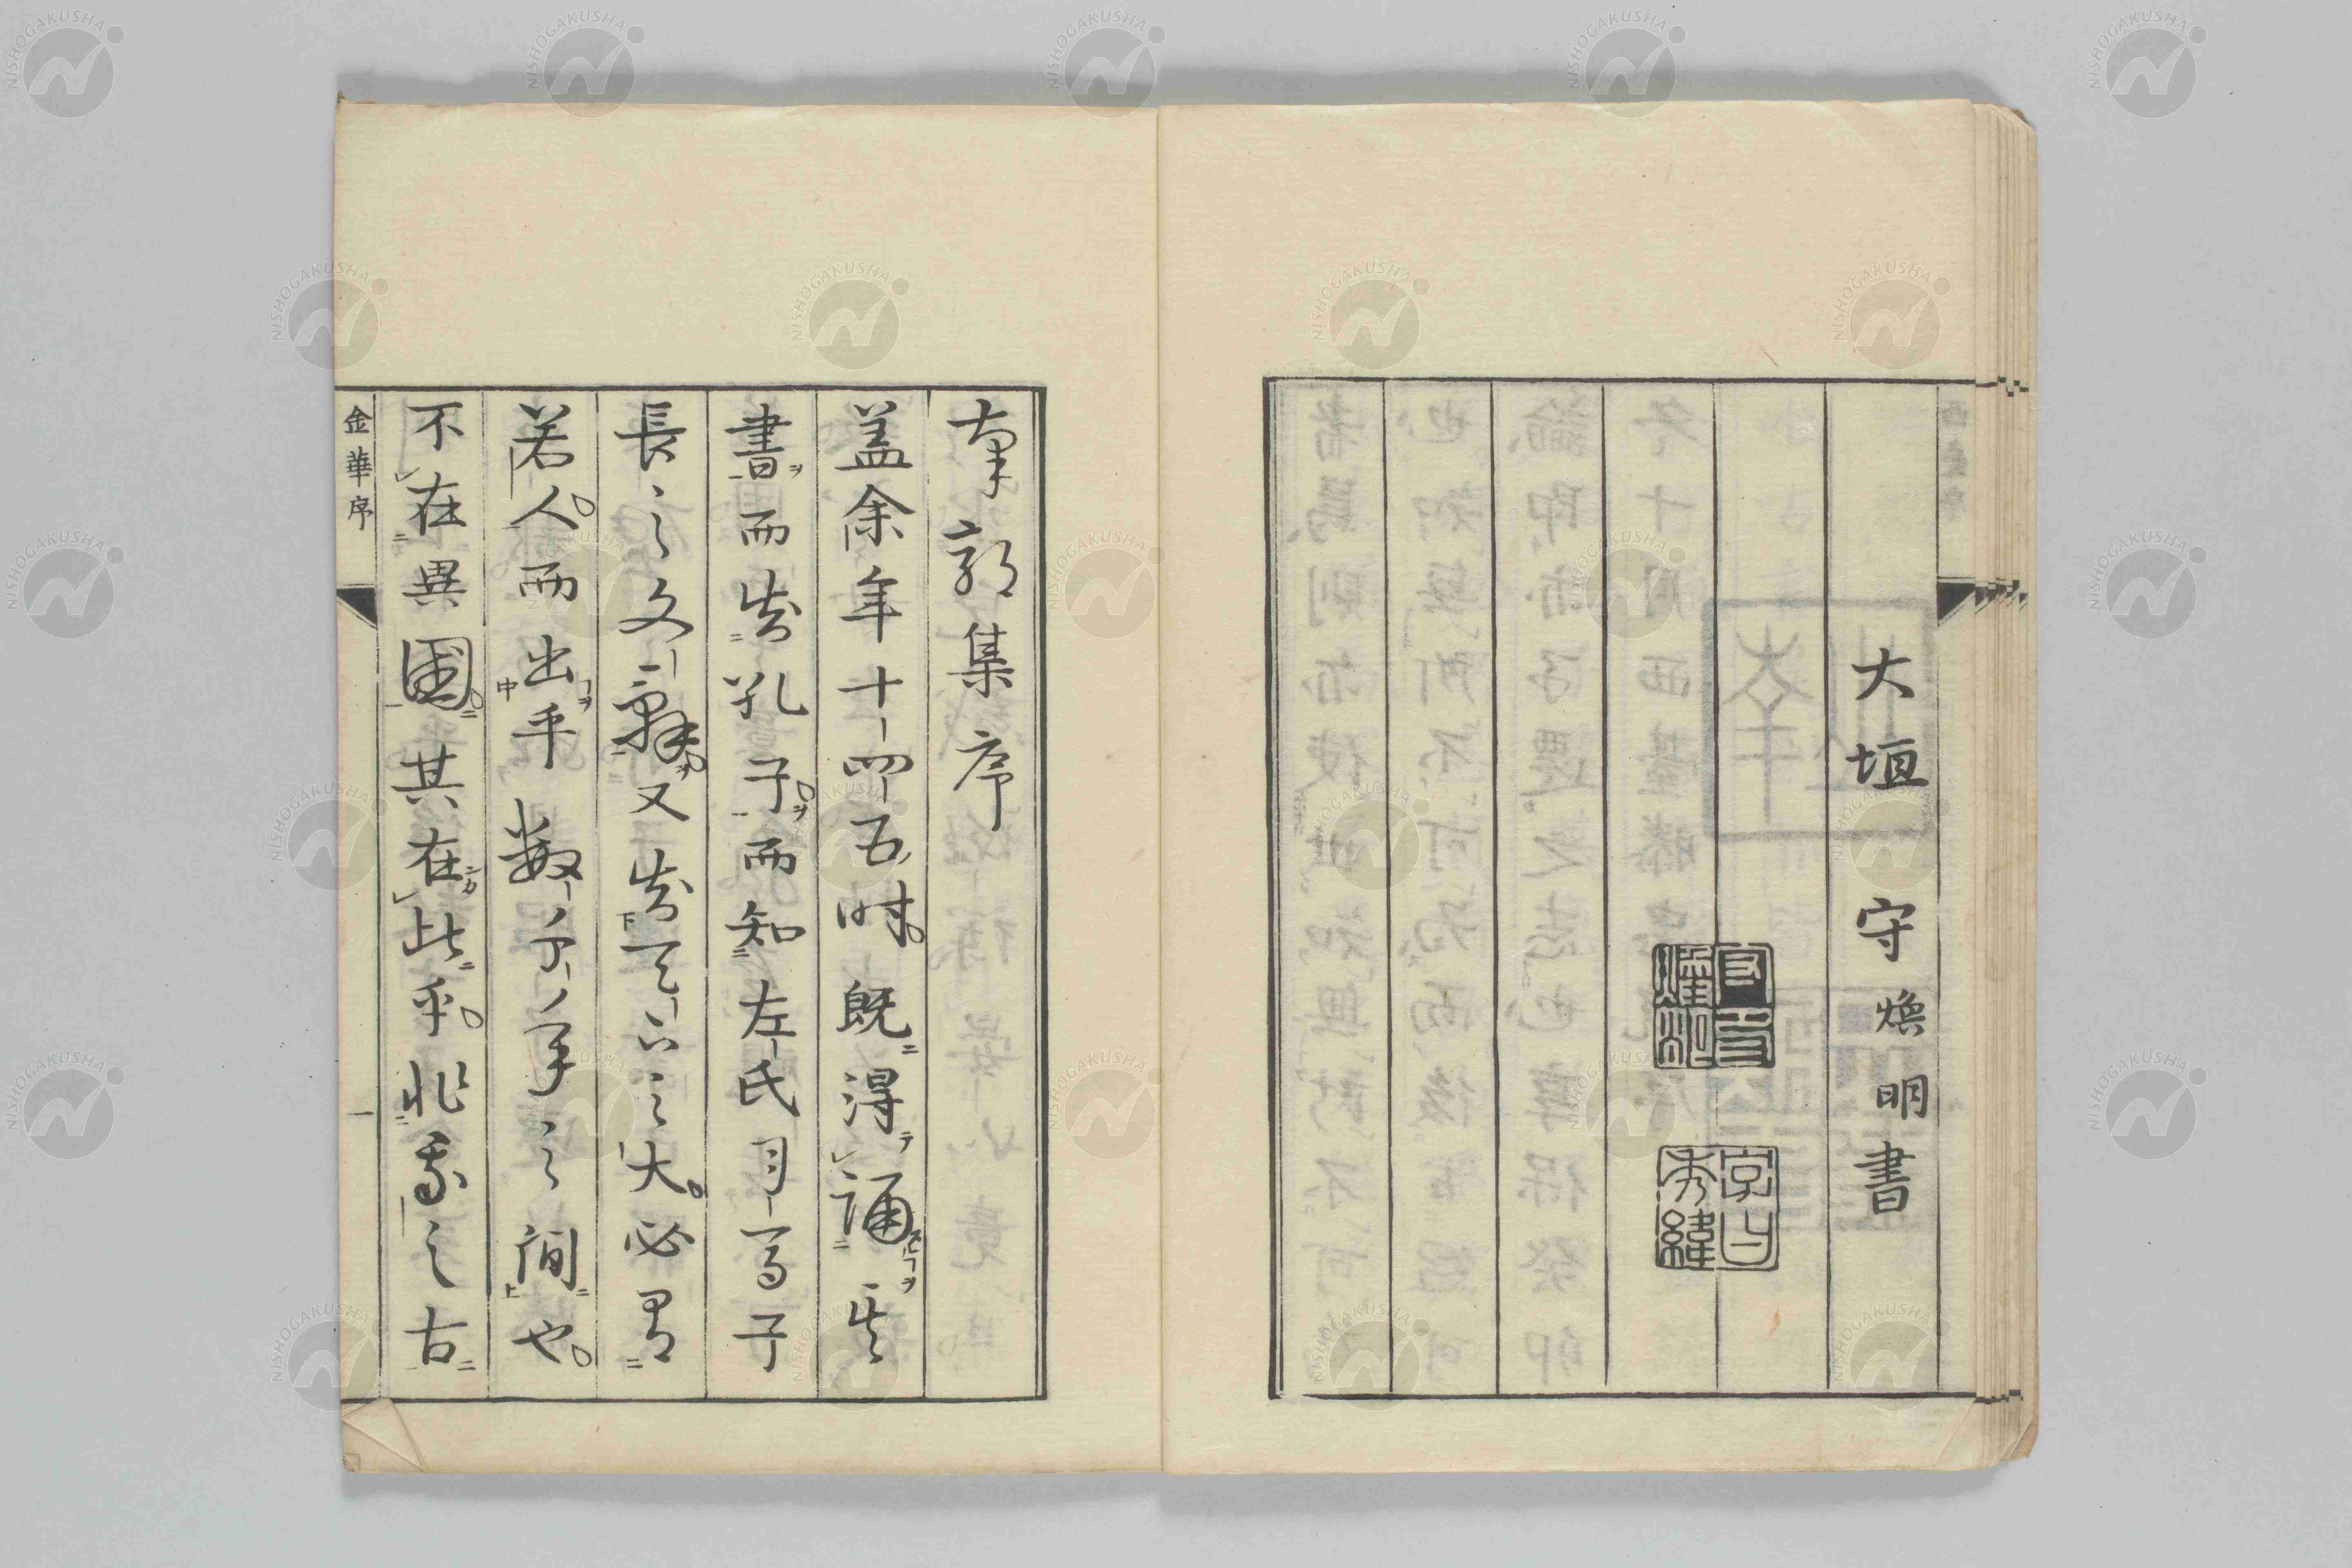 大垣守煥明書
字曰秀緯
南郭集序
蓋余年十四五時既得誦其
書而貴孔子而知左氏司馬子
長之文辭又貴天下之大必有
若人而出乎數千年之間也
不在異國其在此乎非我之古
金華序
一